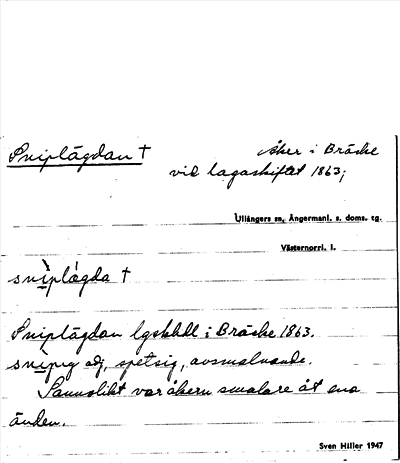 Sniplägdan †
Åker i Bräcke
vid lagaskiftet 1863;
Ullångers sn, Ångermanl. s. doms. tg.
Västernorrl. l.
snìplä́gda †
Sniplägdan lgskhdl i Bräcke 1863.
snìpug adj, spetsig, avsmalnande.
Sannolikt var åkern smalare åt ena
änden.
Sven Hiller 1947